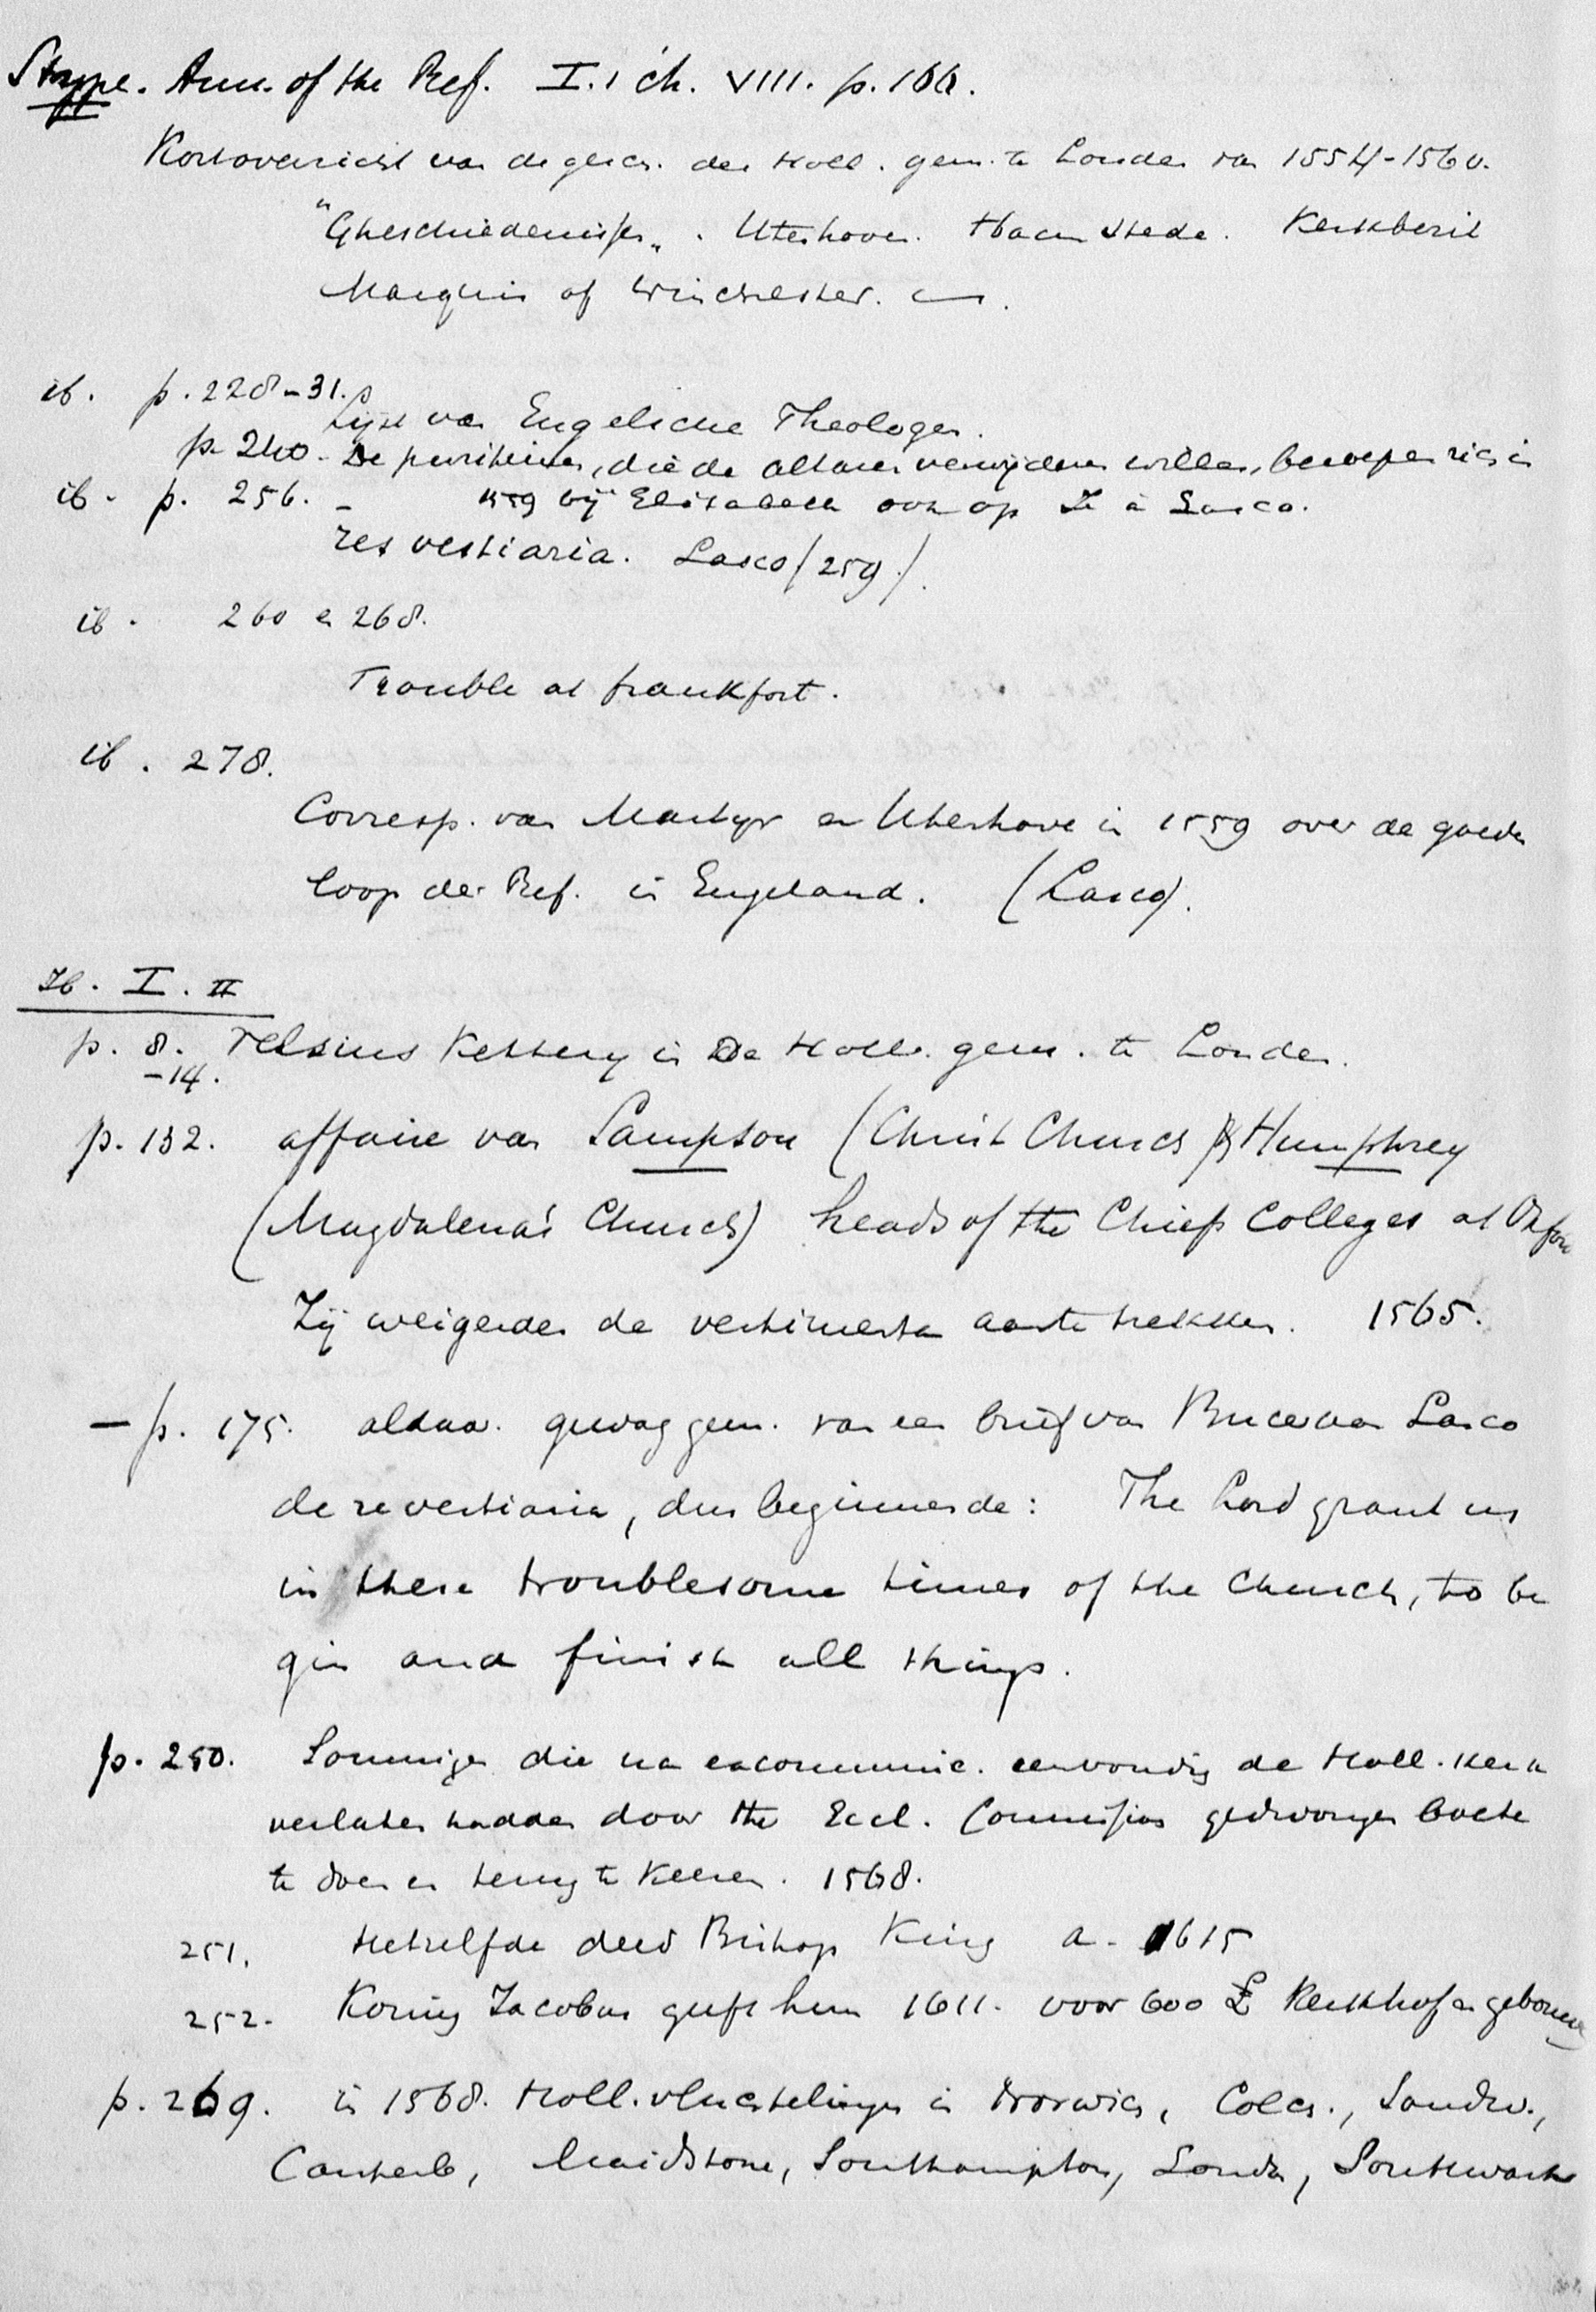 Strype. Ann. of the Ref. I.1 ch. VIII. p. 166.
Kort overzicht van de gesch. der Holl. gem. te Londen van 1554-1560.
"Gheschiedenissen„. Utenhoven. Haemstede. Kerkbezit
Marquis of Winchester. enz.
ib. p. 228-31.
Lijst van Engelsche Theologen.
p. 240. De puriteinen, die de altaren verwijderen willen, beroepen zich in
ib. p. 256. – 1559 bij Elisabeth ook op J. à Lasco.
res vestiaria. Lasco (259).
ib. 260 en 268.
Trouble at Frankfort.
ib. 278.
Corresp. van Martyr en Utenhove in 1559 over de goeden
loop der Ref. in Engeland. (Lasco).
Ib. I. II
p. 8. Velsius Ketterij in De Holl. gem. te Londen.
-14.
p. 132. affaire van Sampson (Christ Church) & Humphrey
(Magdalena's Church) heads of the Chief Colleges at Oxford
Zij weigerden de vestimenten aan te trekken. 1565.
– p. 175. aldaar gewag gem. van een brief van Bucer van Lasco
de re vestiaria, dus beginnende: The Lord grant us
in these troublesome times of the Church, to be
gin and finish all things.
p. 250. Sommigen die na excommunic. eenvoudig de Holl. kerk
verlaten hadden door the Eccl. Commission gedwongen boete
te doen en terug te keeren. 1568.
251. Hetzelfde deed Bishop King a. 1615
252. Koning Jacobus geeft hun 1611. voor 600 £ Kerkhof en gebouw
p. 269. in 1568. Holl. vluchtelingen in Norwich, Colch., Sandw.,
Canterb, Maidstone, Southampton, Londen, Southwark